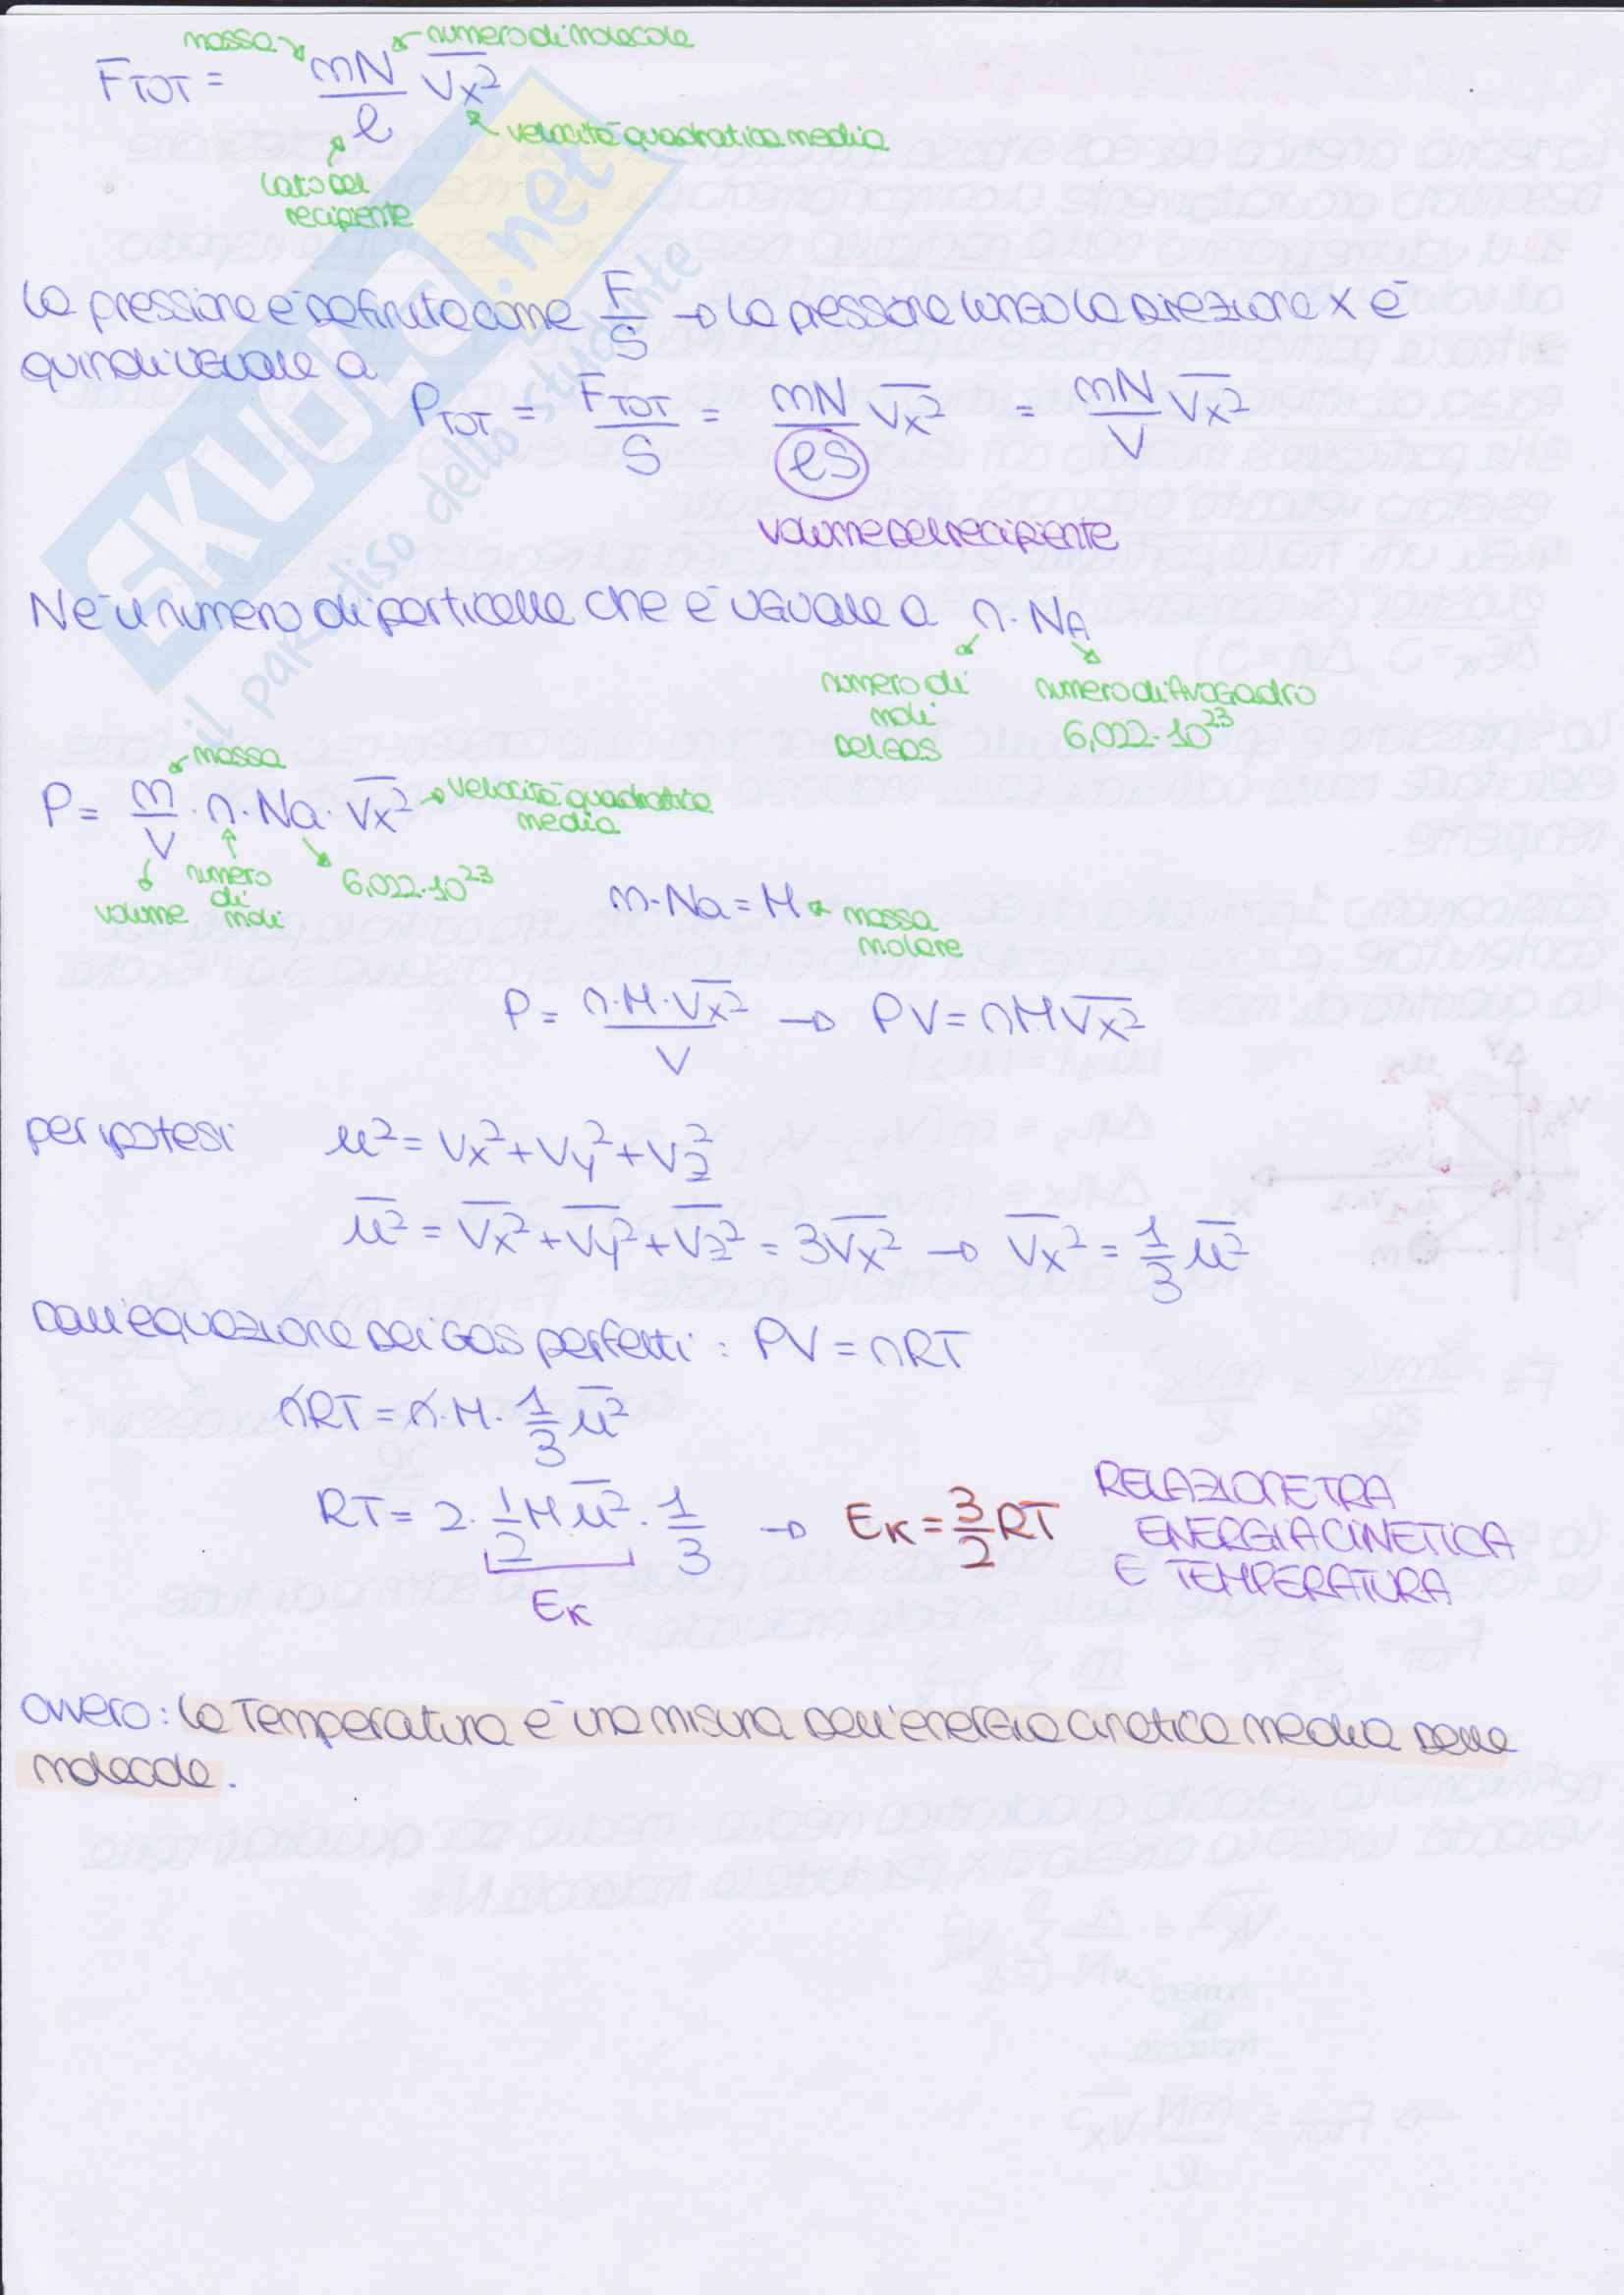 massa numero di molecole
F̅TOT = mN/l V̅x²
velocità quadratica media
lato del
recipiente
la pressione è definita come F/S → la pressione lungo la direzione x è
quindi uguale a
PTOT = F̅TOT/S = mN/lS V̅x² = mN/V V̅x²
volume del recipiente
N è il numero di particelle che è uguale a n·NA
numero di moli del gas
numero di Avogadro
6,022·10²³
massa
P = m/V · n · Na · V̅x² → velocità quadratica media
volume numero di moli 6,022·10²³
m·Na = M massa molare
P = n·M·V̅x²/V → PV = nMV̅x²
per ipotesi u² = Vx² + Vy² + Vz²
u̅² = V̅x² + V̅y² + V̅z² = 3V̅x² → V̅x² = 1/3 u̅²
dall'equazione dei gas perfetti: PV = nRT
nRT = n·M· 1/3 u̅²
RT = 2 · 1/2 M u̅² · 1/3 → EK = 3/2 RT
EK
RELAZIONE TRA
ENERGIA CINETICA
E TEMPERATURA
ovvero: la Temperatura è una misura dell'energia cinetica media delle
molecole.
SKUOLA.net
il paradiso dello studente